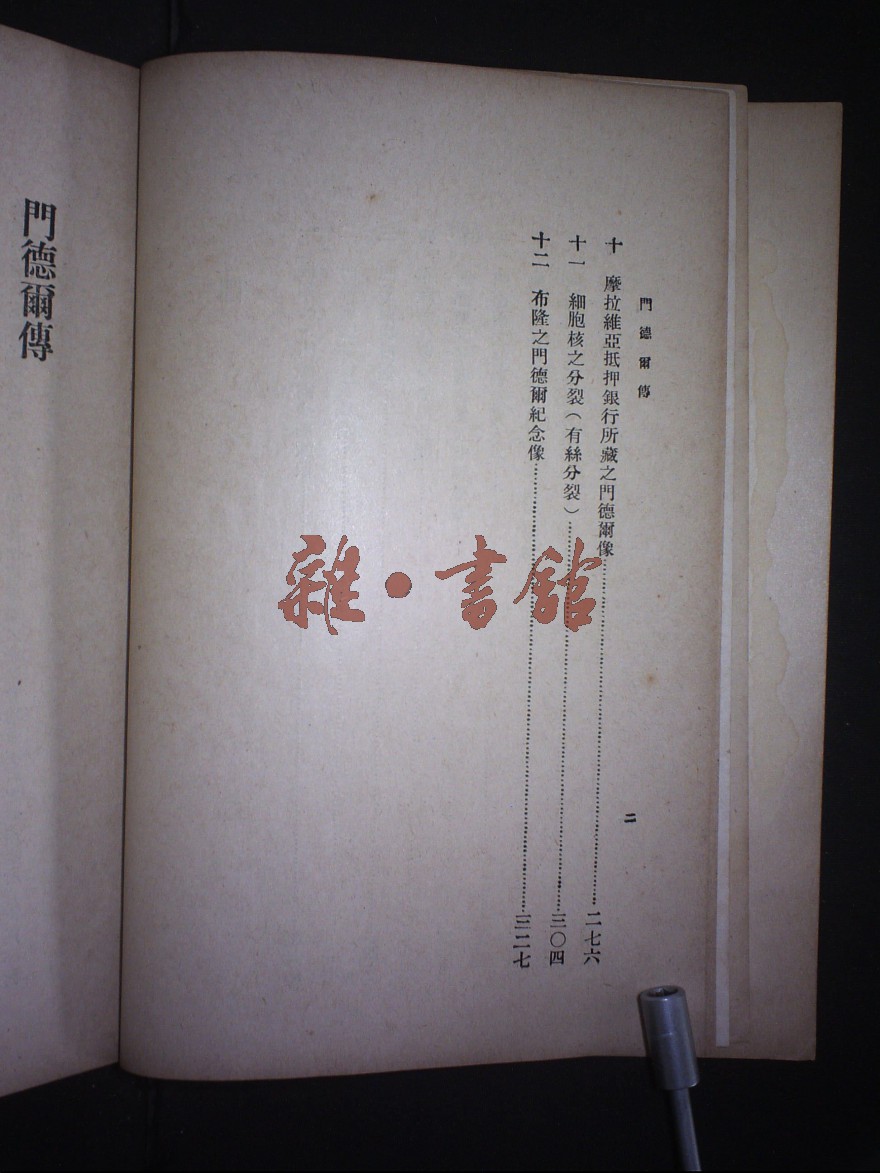 門德爾傳
二
十 摩拉維亞抵押銀行所藏之門德爾像……二七六
十一 細胞核之分裂(有絲分裂)……三〇四
十二 布隆之門德爾紀念像……三二七
門德爾傳
雜·書館